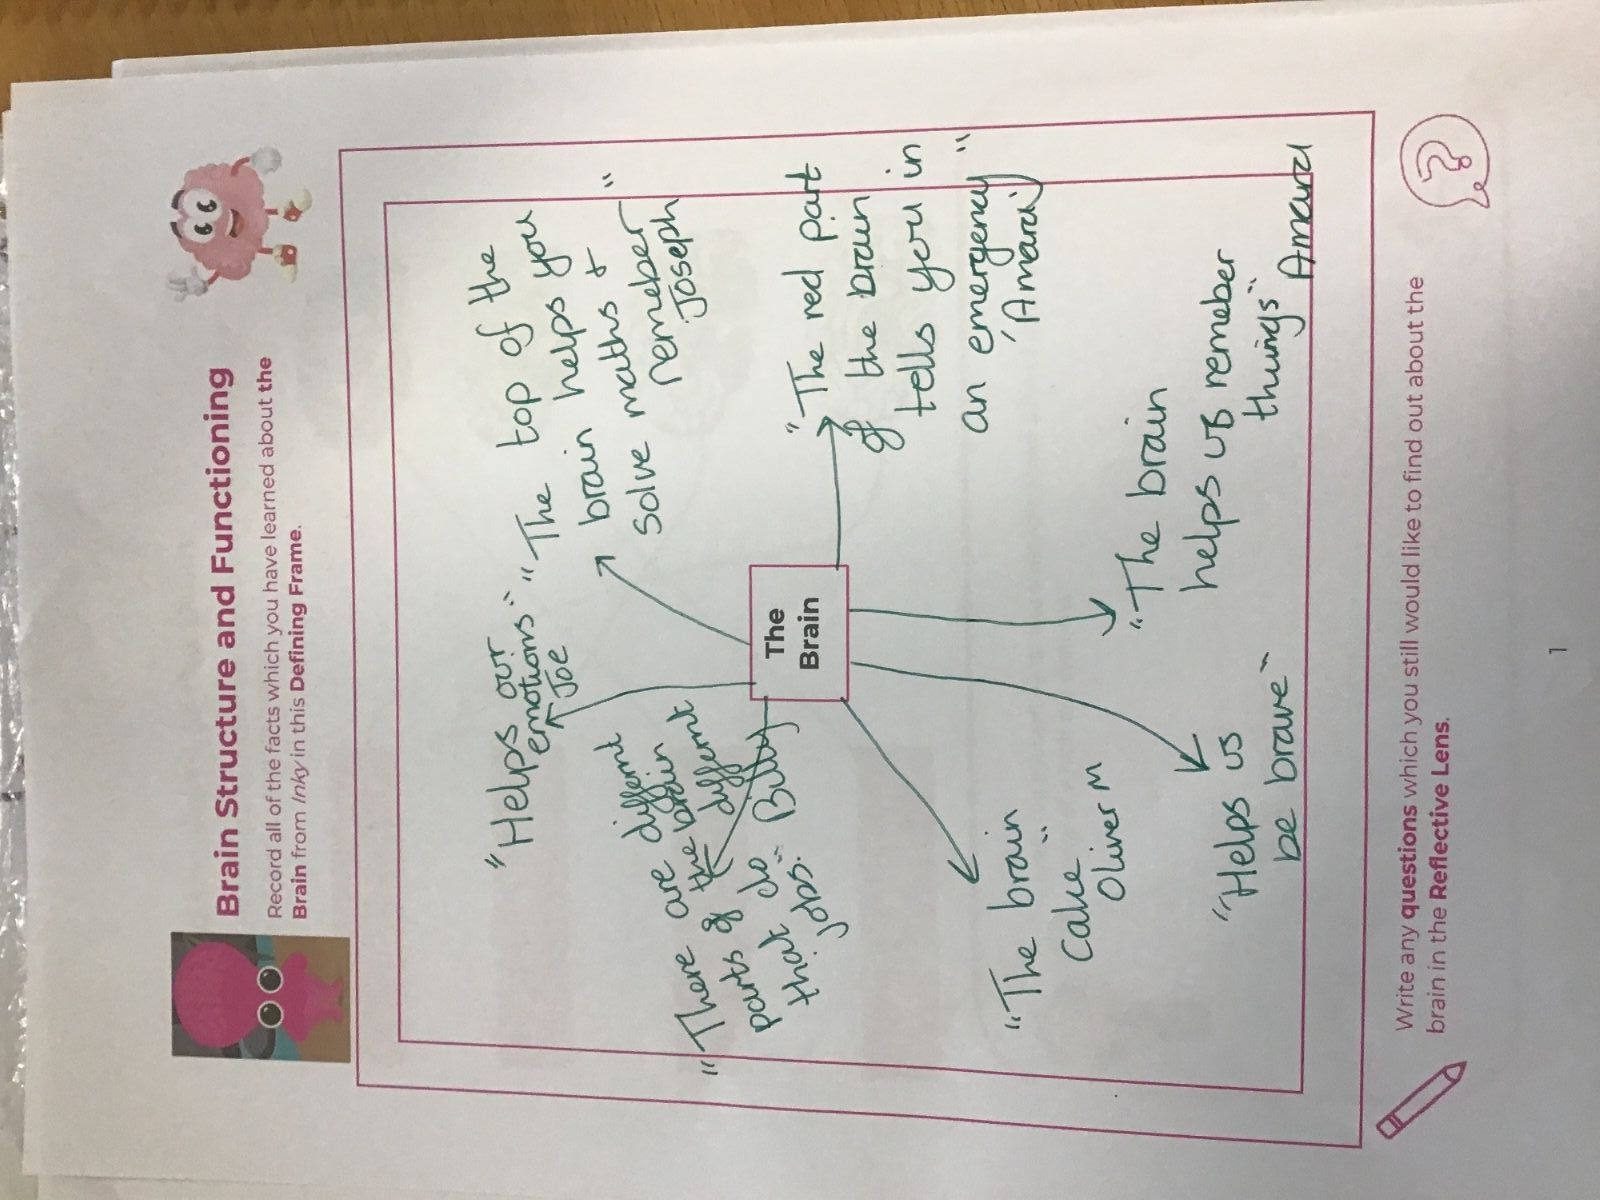 Brain Structure and Functioning
Record all of the facts which you have learned about the
Brain from Inky in this Defining Frame.
"Helps our
emotions"
Joe
"The top of the
brain helps you
solve maths &
remeber"
Joseph
"There are differnt
parts of the brain
the differnt
that do
jobs."
Billy
The
Brain
"The red part
of the brain
tells you in
an emergency"
(Amara)
"The brain
cake"
Oliver M
"The brain
helps us remeber
things"
Amara
"Helps us
be brave"
Write any questions which you still would like to find out about the
brain in the Reflective Lens.
?
1